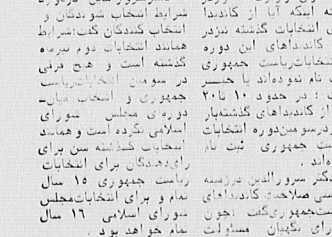 شرایط انتخاب شوندگان و
انتخاب کنندگان گفت: شرایط
همانند انتخابات دوم تیرماه
گذشته است و هیچ فرقی
در سومین انتخابات ریاست
جمهوری و انتخاب میان‌
دوره‌ی مجلس شورای
اسلامی نکرده است و همانند
انتخابات گذشته سن برای
رای‌دهندگان برای انتخابات
ریاست جمهوری ۱۵ سال
تمام و برای انتخابات مجلس
شورای اسلامی ۱۶ سال
تمام خواهد بود.
که اینکه آیا از کاندیدا
ی انتخابات گذشته نیز در
کاندیداهای این دوره
نتخابات ریاست جمهوری
ت نام نموده‌اند یا خیر
ت : در حدود ۱۰ تا ۲۰
از کاندیداهای گذشته بار
در سومین دوره انتخابات
ست جمهوری ثبت نام
ه‌اند .
کتر سرورالدین در زمینه
سی صلاحیت کاندیداهای
ست جمهوری گفت : چون
رای نگهبان مسئولیت